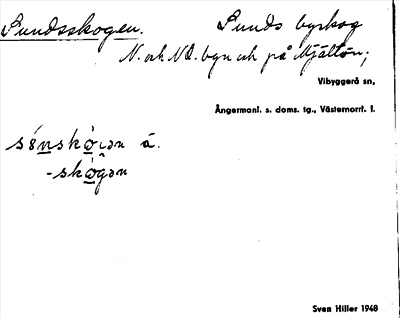 Sundsskogen.
Sunds byskog
N. och NO. byn och på Mjältön;
Vibyggerå sn,
Ångermanl. s. doms. tg., Västernorrl. l.
å.
Sven Hiller 1948